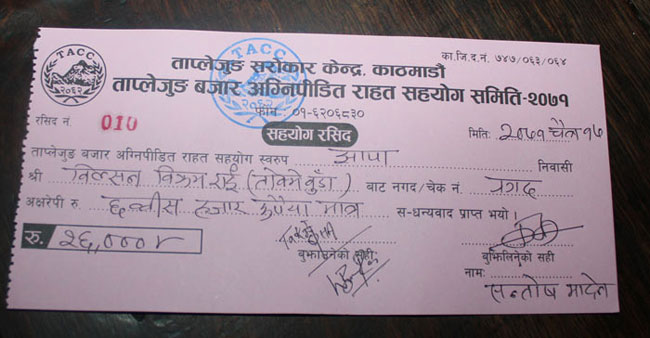 TACC
२०६२
का.जि.द.नं. ७४७/०६३/०६४
ताप्लेजुङ सरोकार केन्द्र, काठमाडौं
ताप्लेजुङ बजार अग्निपीडित राहत सहयोग समिति-२०७१
फोन: ०१-६२०६८३०
रसिद नं. 010
सहयोग रसिद
मिति: २०७१ चैत्र १७
ताप्लेजुङ बजार अग्निपीडित राहत सहयोग स्वरुप आपा निवासी
श्री विल्सन विक्रम राई (तोक्मे बुँडा) बाट नगद / चेक नं. नगद
अक्षरेपी रु. छब्बीस हजार रुपैया मात्र स-धन्यवाद प्राप्त भयो ।
रु. २६,०००४
बुझाउनेको सही
बुझिलिनेको सही
नाम:
सन्तोष मादेन